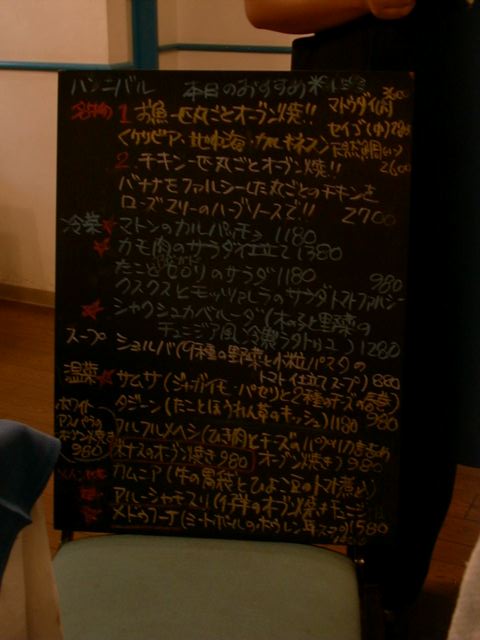 ハンニバル 本日のおすすめ
名物 1 お魚一匹丸ごとオーブン焼!! マトウダイ
2 チキン一匹丸ごとオーブン焼!! 2600
バナナをファルシーした丸ごとのチキンを
ローズマリーのハーブソースで!! 2700
冷菜 マトンのカルパッチョ 1180
カモ肉のサラダ仕立て 1380
たことセロリのサラダ 1180 980
クスクスとモッツァレラのサラダトマトファルシー
シャクシュカベルーダ(木の子と野菜の
チュニジア風冷製ラタトゥユ) 1280
スープ ショルバ(4種の野菜と小粒パスタの
トマト仕立てスープ) 880
温菜 サムサ(ジャガイモ、パセリと2種のチーズの春巻)
タジーン(たことほうれん草のキッシュ) 1180 980
ホワイト
アスパラの
オーブン焼き
980
フルフルメハシ(ひき肉とチーズの
米ナスのオーブン焼き 980 オーブン焼き) 980
カムニア(牛の胃袋とひよこ豆のトマト煮)
メドゥナーテ(ミートボールのホウレン草 1580